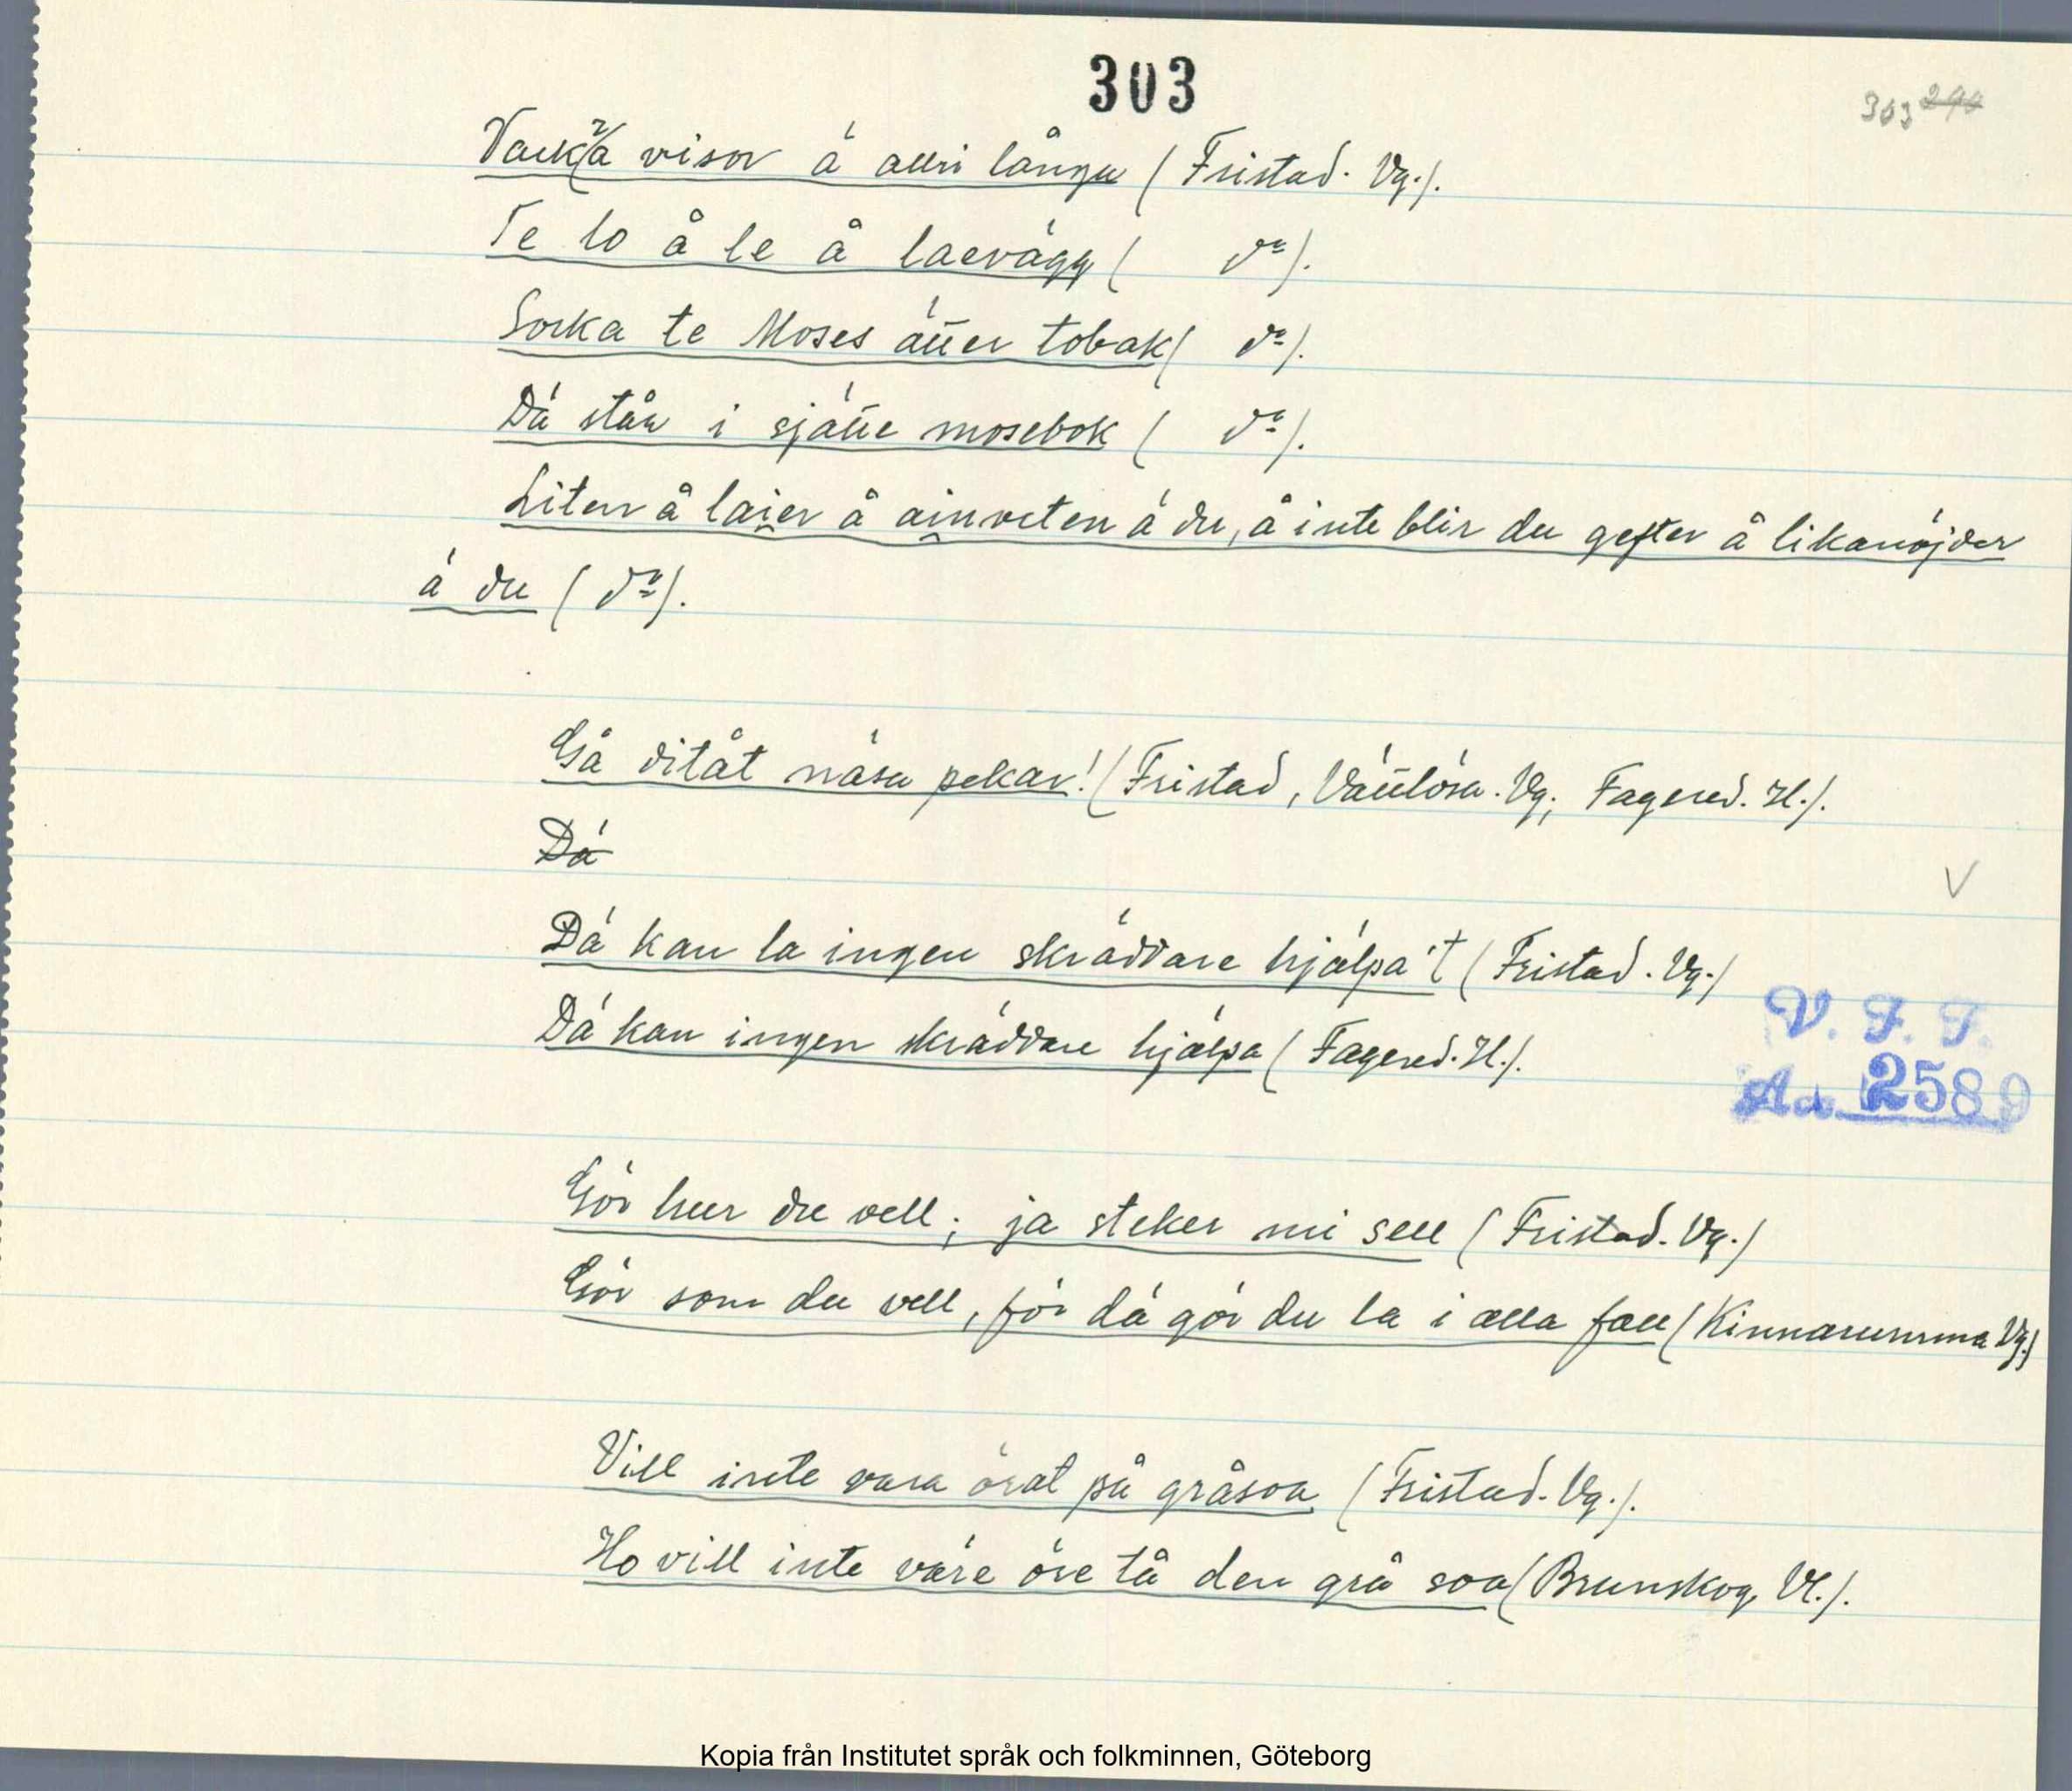 303
303 290
Vackra visor ä alri långa (Fristad. Vg.).
Te lo å le å laevägg ( do).
Sorka te Moses ätter tobak ( do).
Dä står i sjätte mosebok ( do).
Liten å laier å ainveten ä du, å inte blir du gefter å likanöjder
ä du (do).
Gå ditåt näsa pekar! (Fristad, Vättlösa. Vg; Fagered. Hl.).
Dä
Dä kan la ingen skräddare hjälpa't (Fristad. Vg.)
Dä kan ingen skräddare hjälpa (Fagered. Hl.).
V. F. F.
Ad. 2589
Gör hur du vell; ja steker mi sell (Fristad. Vg.)
Gör som du vell, för dä gör du la i alla fall (Kinnarumma Vg.)
Vill inte vara örat på gråsoa (Fristad. Vg.).
Ho vill inte väre öre tå den grå soa (Brunskog, Vl.).
Kopia från Institutet språk och folkminnen, Göteborg